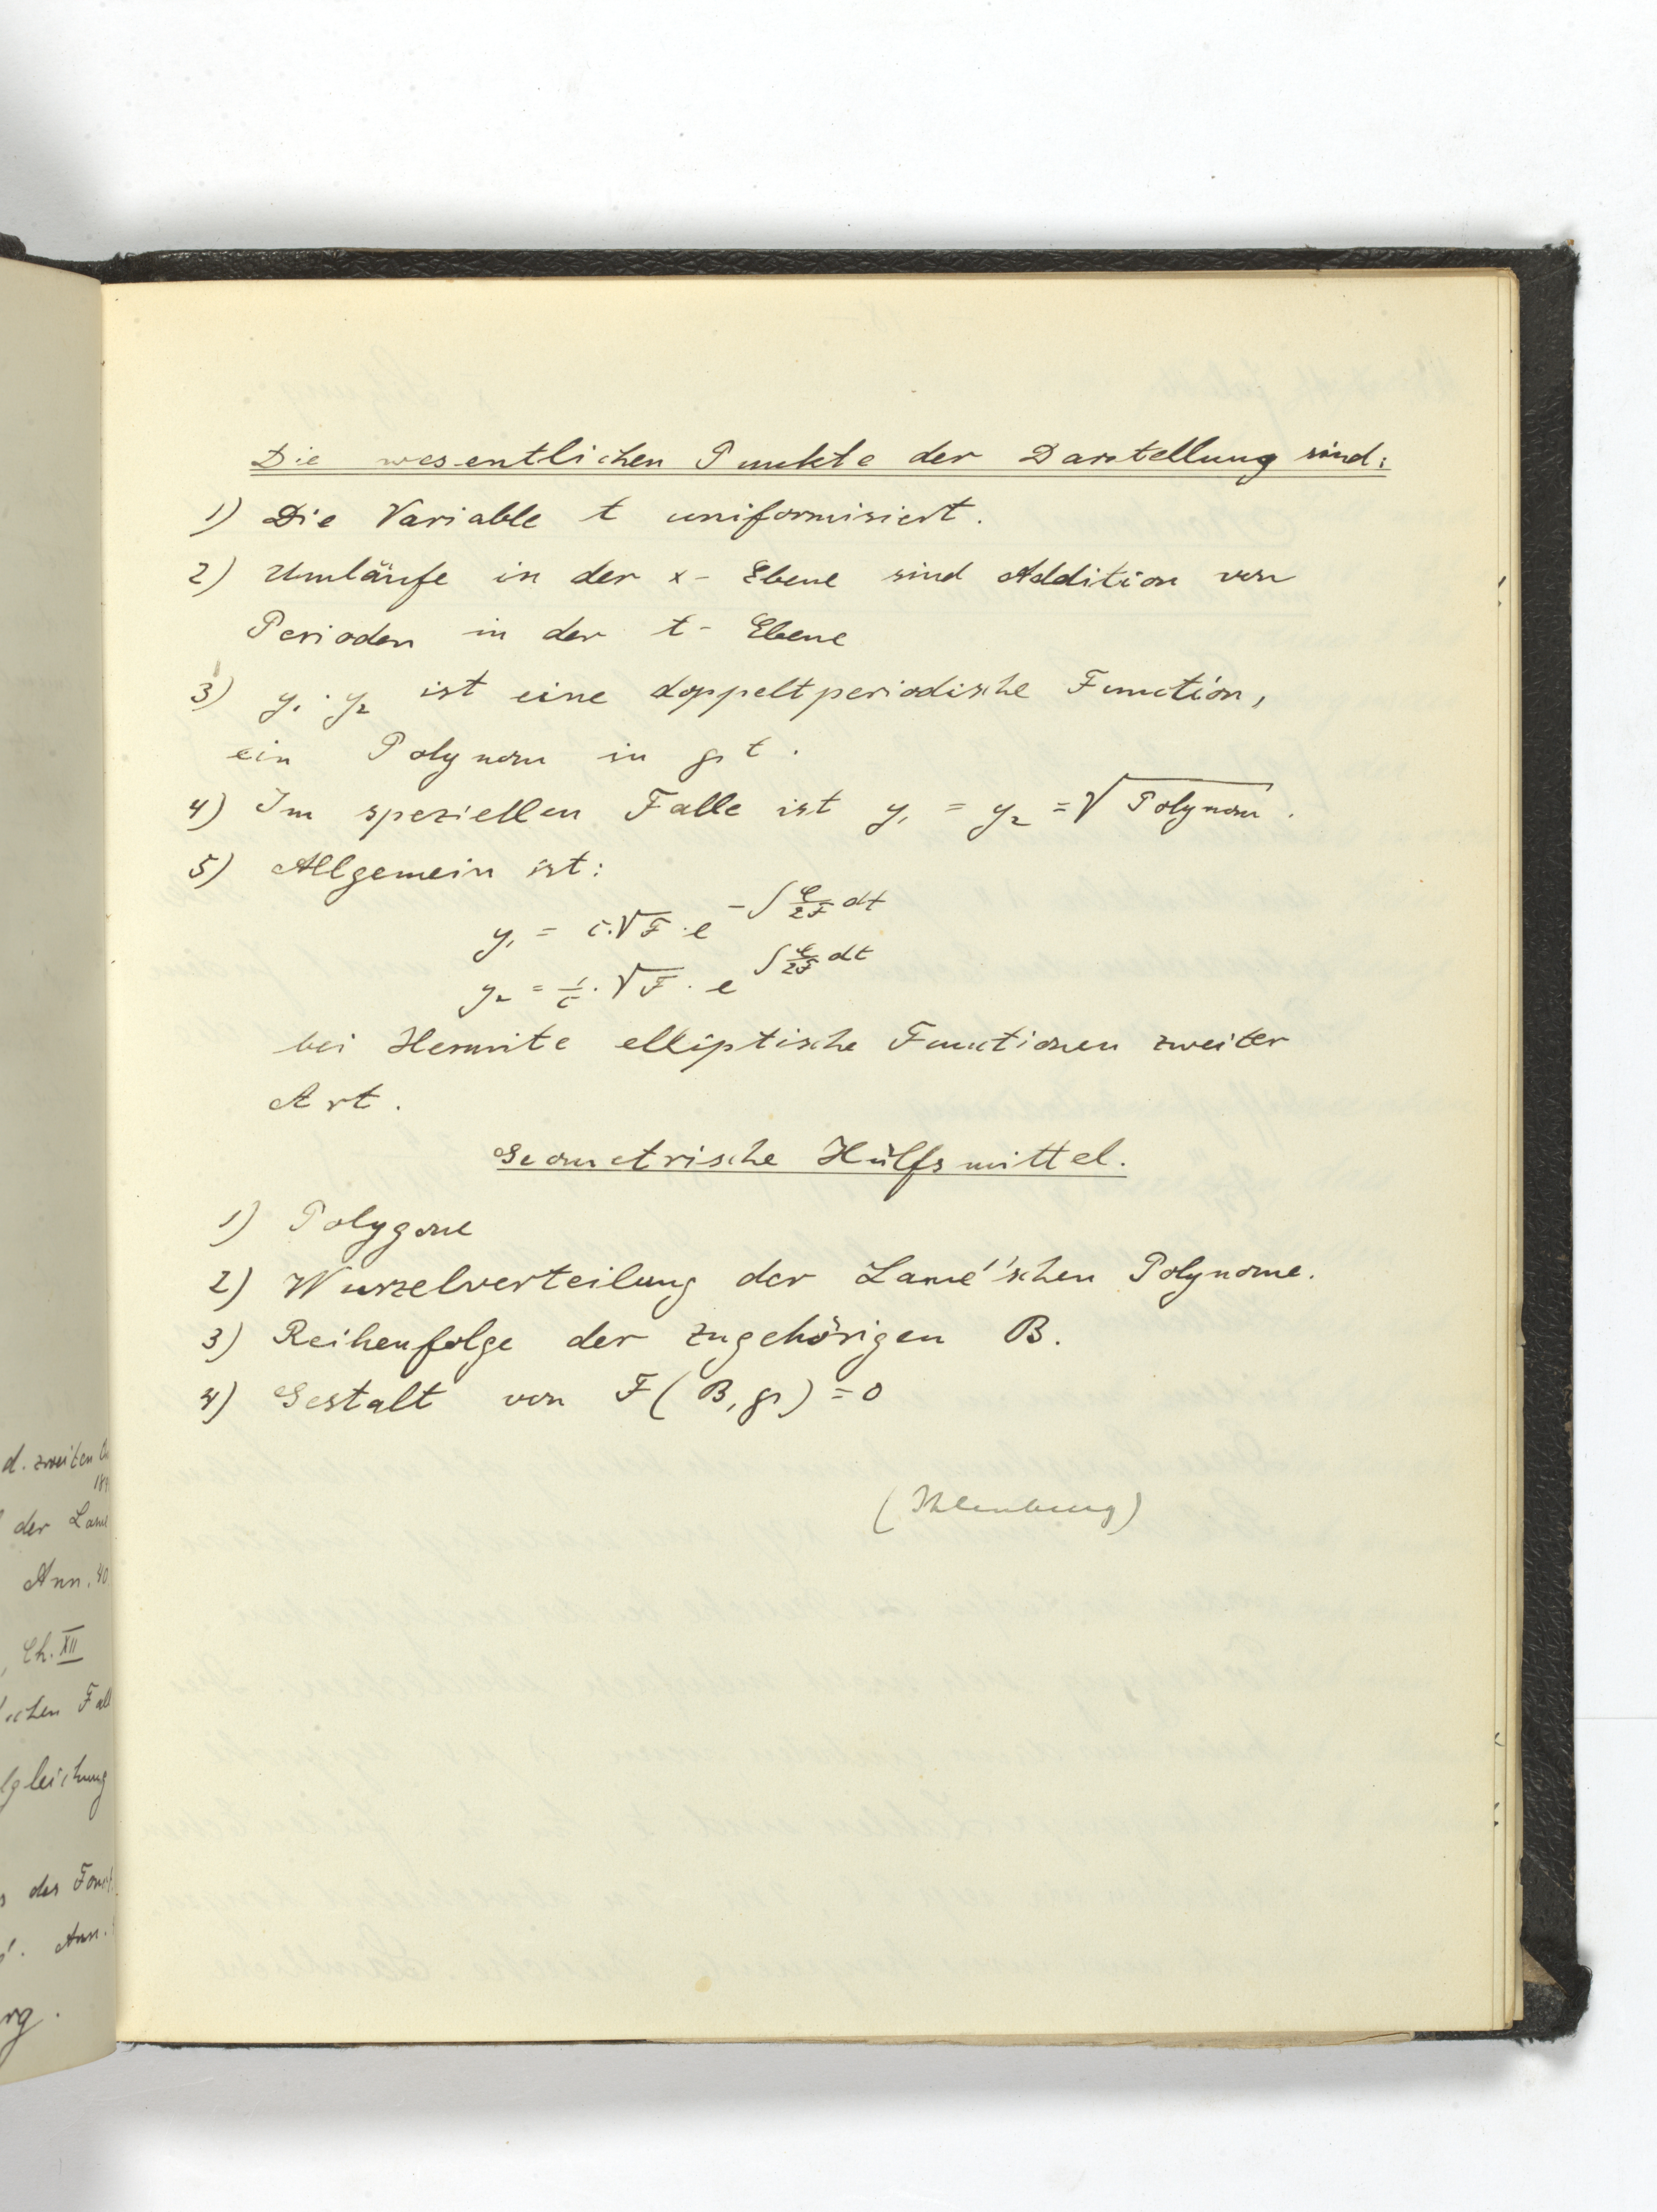 Die wesentlichen Punkte der Darstellung sind:
1) Die Variable t uniformisiert.
2) Umläufe in der x- Ebene sind Addition von
Perioden in der t- Ebene
3) y₁ · y₂ ist eine doppeltperiodische Function,
ein Polynom in ℘ t.
4) Im speziellen Falle ist y₁ = y₂ = √Polynom.
5) Allgemein ist:
y₁ = c·√F · e^{-∫ C/2F dt}
y₂ = 1/c · √F · e^{∫ C/2F dt}
bei Hermite elliptische Functionen zweiter
Art.
Geometrische Hülfsmittel.
1) Polygone
2) Wurzelverteilung der Lamé'schen Polynome.
3) Reihenfolge der zugehörigen B.
4) Gestalt von F(B, ℘) = 0
(Ihlenburg)
d. zweiten
der Lamé
Ann. 40
Ch. XII
chen Fall
lgleichung
des
Ann.
rg.